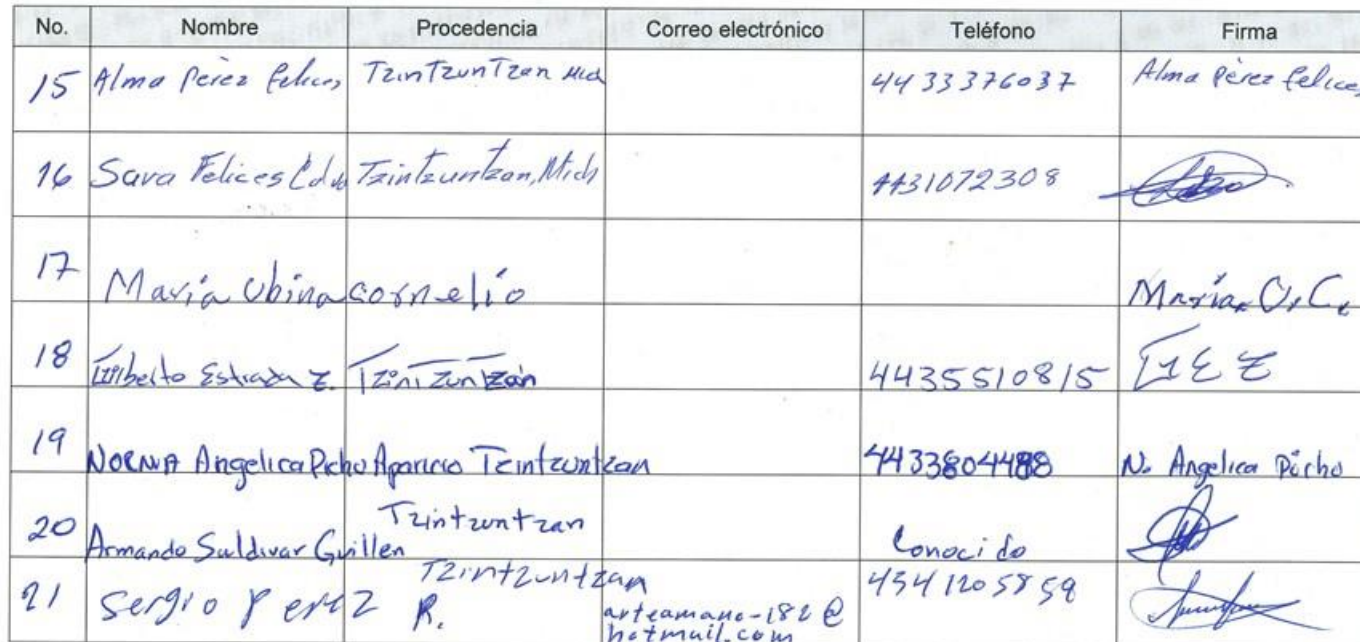 No. Nombre Procedencia Correo electrónico Teléfono Firma
15 Alma Pérez Felices Tzintzuntzan Mich 4433376037 Alma Pérez Felices
16 Sara Felices Tzintzuntzan, Mich 4431072308
17 María Ubina Cornelio María. O. C.
18 Gilberto Estrada Z. Tzintzuntzán 4435510815 G E Z
19 NORMA Angelica Picho Aparicio Tzintzuntzan 4433804488 N. Angelica Picho
20 Armando Saldivar Guillen Tzintzuntzan Conocido
21 Sergio Perez R. Tzintzuntzan arteamano-182@
hotmail.com